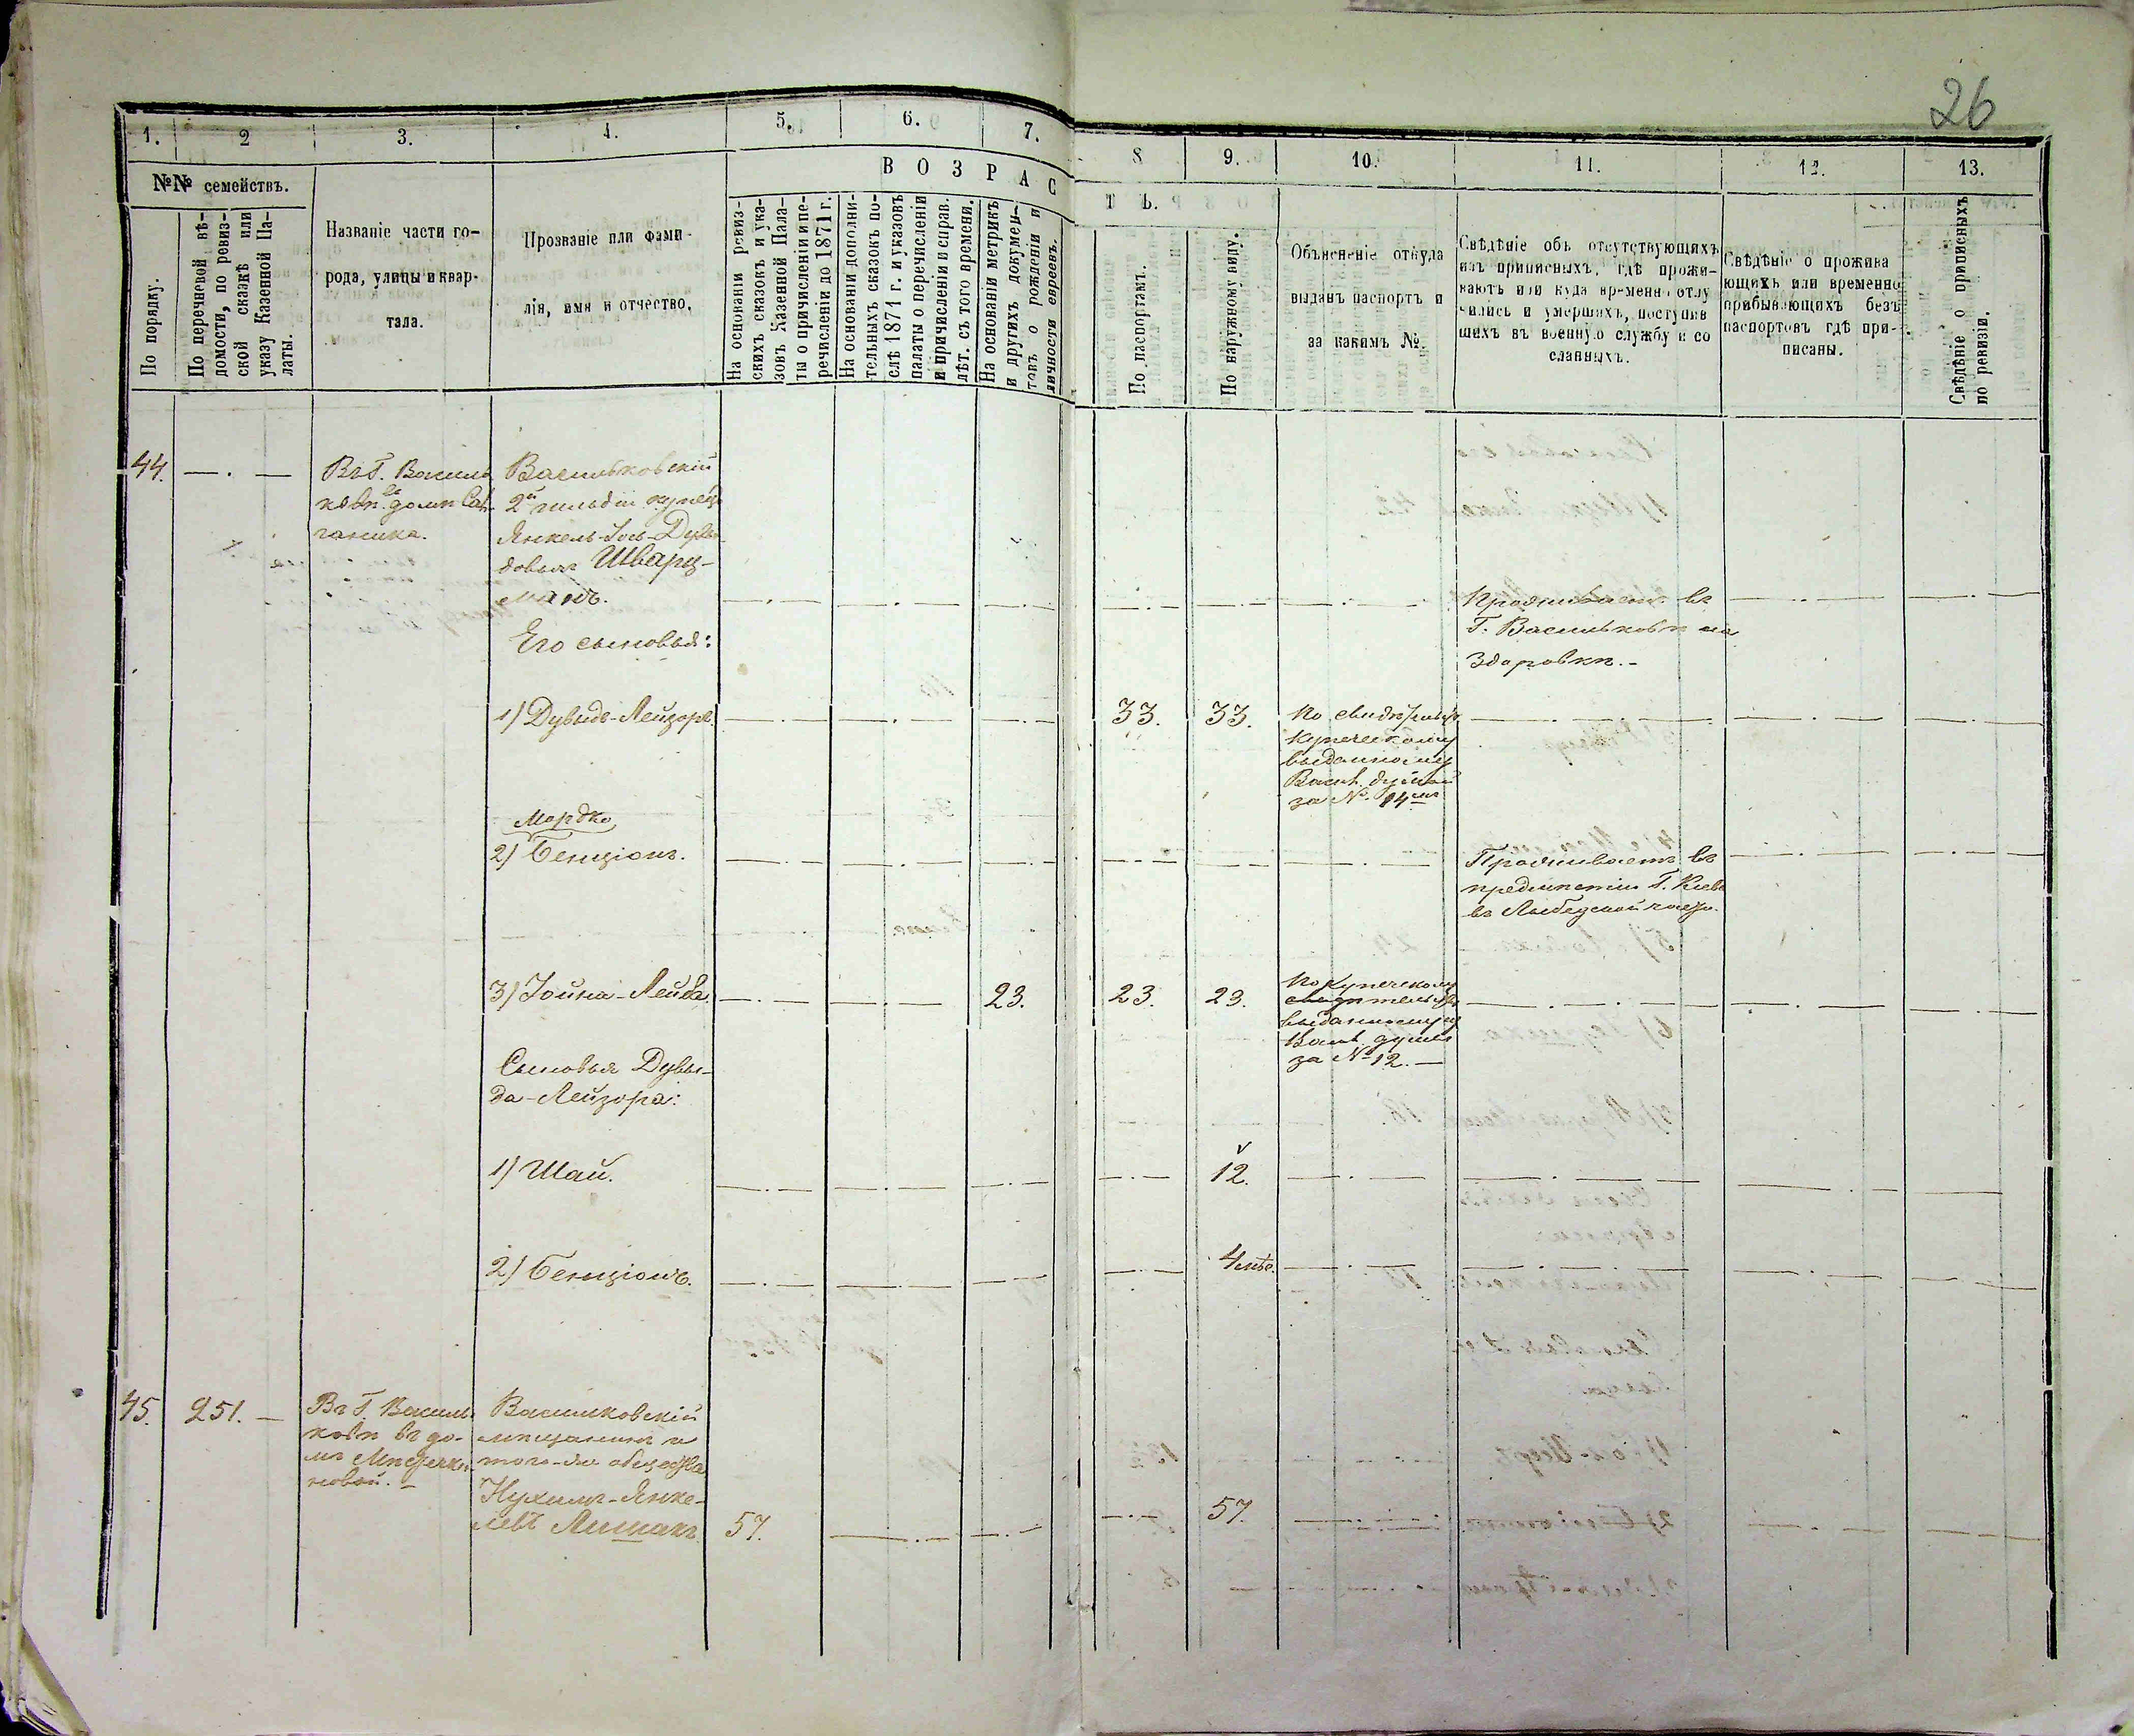 26
1. 2 3. 4. 5. 6. 7. 8 9. 10. 11. 12. 13.
№№ семействъ.
По порядку.
По перечневой вѣ-
домости, по ревиз-
ской сказкѣ или
указу Казенной Па-
латы.
Названіе части го-
рода, улицы и квар-
тала.
Прозваніе или фами-
лія, имя и отчество.
ВОЗРАСТЪ.
На основаніи ревиз-
скихъ сказокъ и ука-
зовъ Казенной Пала-
ты о причисленіи и пе-
речисленіи до 1871 г.
На основаніи дополни-
тельныхъ сказокъ по-
слѣ 1871 г. и указовъ
палаты о перечисленіи
и причисленіи и справ.
лѣт. съ того времени.
На основаніи метрикъ
и другихъ докумен-
товъ о рожденіи и
личности евреевъ.
По паспортамъ.
По наружному виду.
Объясненіе откуда
выданъ паспортъ и
за какимъ №.
Свѣдѣніе объ отсутствующихъ
изъ приписныхъ, гдѣ прожи-
ваютъ или куда временно отлу
чились и умершихъ, поступив
шихъ въ военную службу и со
сланныхъ.
Свѣдѣніе о прожива
ющихъ или временно
прибывающихъ безъ
паспортовъ гдѣ при-
писаны.
Свѣдѣніе о приписныхъ
по ревизіи.
44.
Въ Г. Василь
ковѣ въ домѣ
Васильковскій
2й гильдіи купецъ
Янкель-Іось-Дувы-
довъ Шварц-
манъ.
Проживаетъ въ
Г. Васильковѣ на
Здоровкѣ.-
Его сыновья:
1) Дувыдъ-Лейзоръ
33. 33.
По свидѣтельству
купеческому
выданному
Васил. думой
за № 14мъ
Мордко
2) Бенціонъ.
Проживаетъ въ
предмѣстіи Г. Кіева
въ Лыбедской части.
3) Іойна-Лейба
23. 23. 23.
По купеческому
свидѣтельству
выданному
Васил. думой
за № 12.
Сыновья Дувы-
да-Лейзора:
1) Шай.
12.
2) Бенціонъ.
4
45. 251.
Въ Г. Василь-
ковѣ въ до-
мѣ
Васильковскій
мѣщанинъ и
того-же общества
Нухимъ-Янке-
левъ Лишакъ
57. 57.